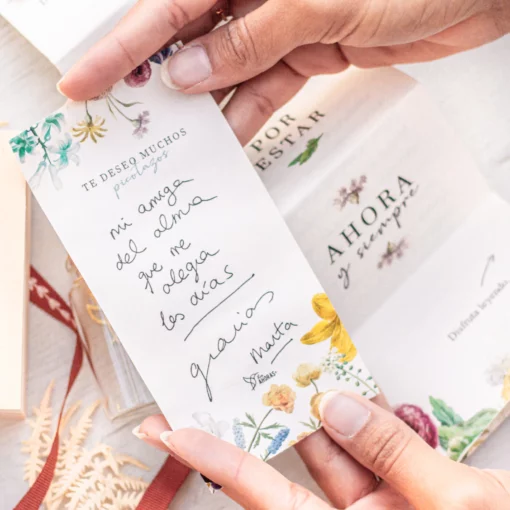 TE DESEO MUCHOS
picolagos
mi amiga
del almia
que me
alegra
los días
gracias
Marta
POR
ESTAR
AHORA
y siempre
Disfruta leyendo